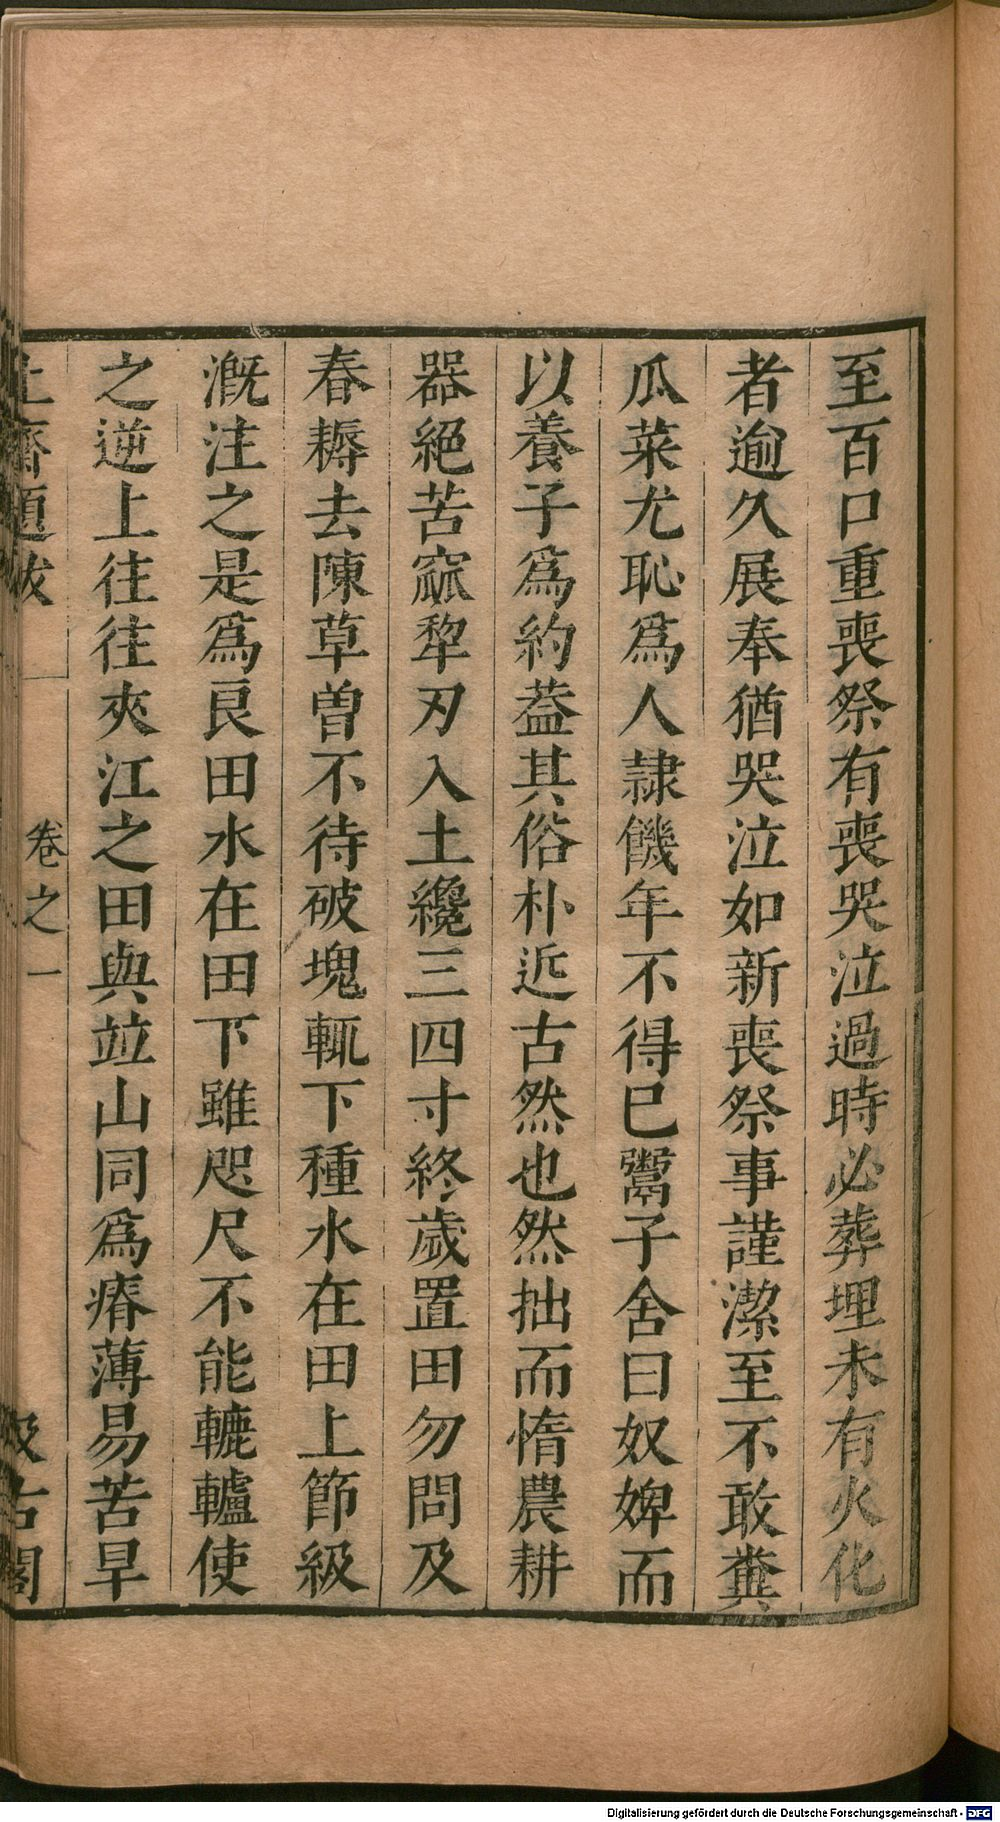 至百口重喪祭有喪哭泣過時必葬埋未有火化
者逾久展奉猶哭泣如新喪祭事謹潔至不敢糞
瓜菜尤恥爲人隷饑年不得已鬻子舍曰奴婢而
以養子爲約葢其俗朴近古然也然拙而惰農耕
器絕苦窳犂刃入土纔三四寸終歲置田勿問及
春耨去陳草曾不待破塊輒下種水在田上節級
漑注之是爲良田水在田下雖咫尺不能轆轤使
之逆上往往夾江之田與竝山同爲瘠薄易苦旱
止齋題跋 卷之一 汲古閣
Digitalisierung gefördert durch die Deutsche Forschungsgemeinschaft - DFG